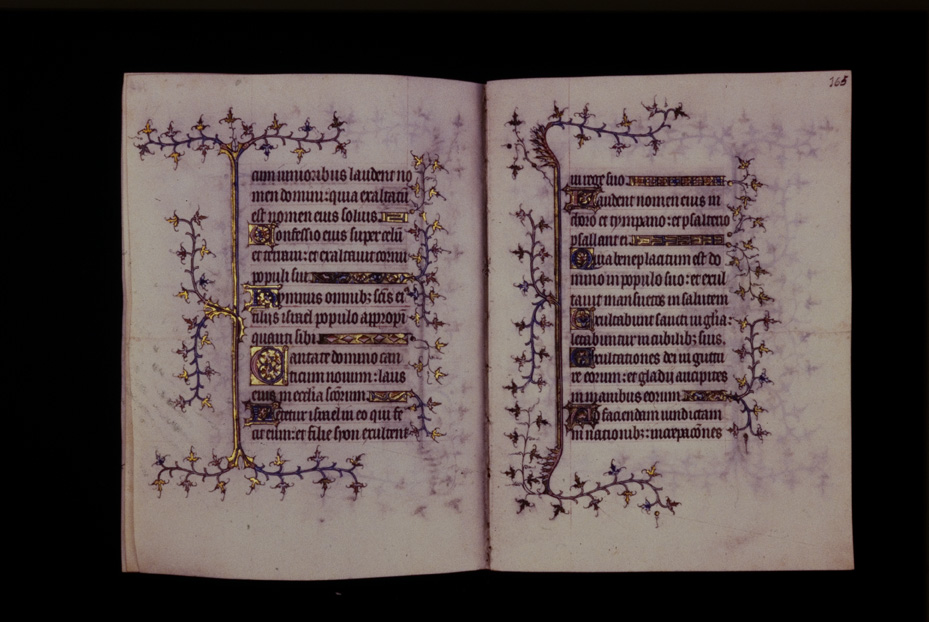 cum iunioribus laudent no
men domini: quia exaltatū
est nomen eius solius.
Confessio eius super celū
et terram: et exaltauit cornu
populi sui.
Hympnus omnib; scīs ei
filijs isrāel populo appropī
quanti sibi.
Cantate domino can
ticum nouum: laus
eius in ecclīa scōrum.
Letetur israel in eo qui fe
cit eum: et filie syon exultent
165
in rege suo.
Laudent nomen eius in
choro et tympano: et psalterio
psallant ei.
Quia beneplacitum est do
mino in populo suo: et exal
tauit mansuetos in salutem
Exultabunt sancti in glīa:
letabuntur in cubilib; suis.
Exultationes dei in guttu
re eorum: et gladij ancipites
in manibus eorum
Ad faciendam uindictam
in nacionib;: increpacōnes